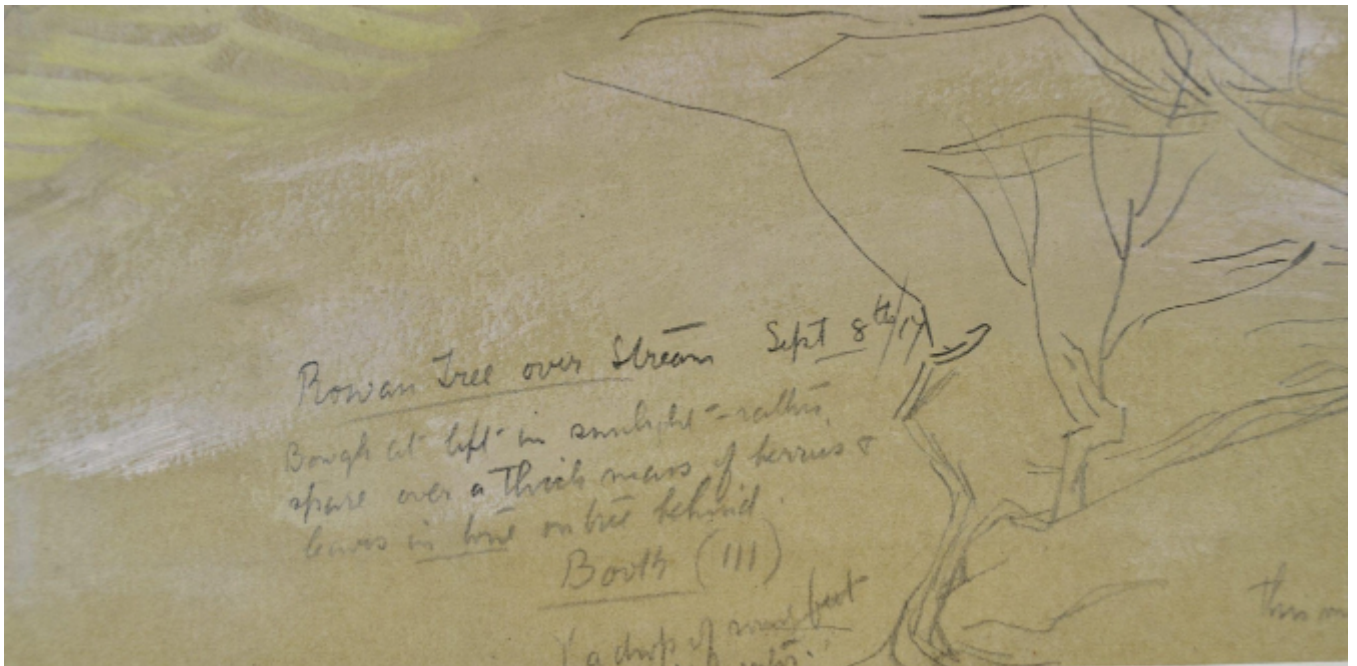 Rowan Tree over Stream Sept 8th/17
Bough at left in sunlight - rather
spare over a thick mass of berries &
leaves in tone on tree behind.
Booth (111)
a drop of some feet
This